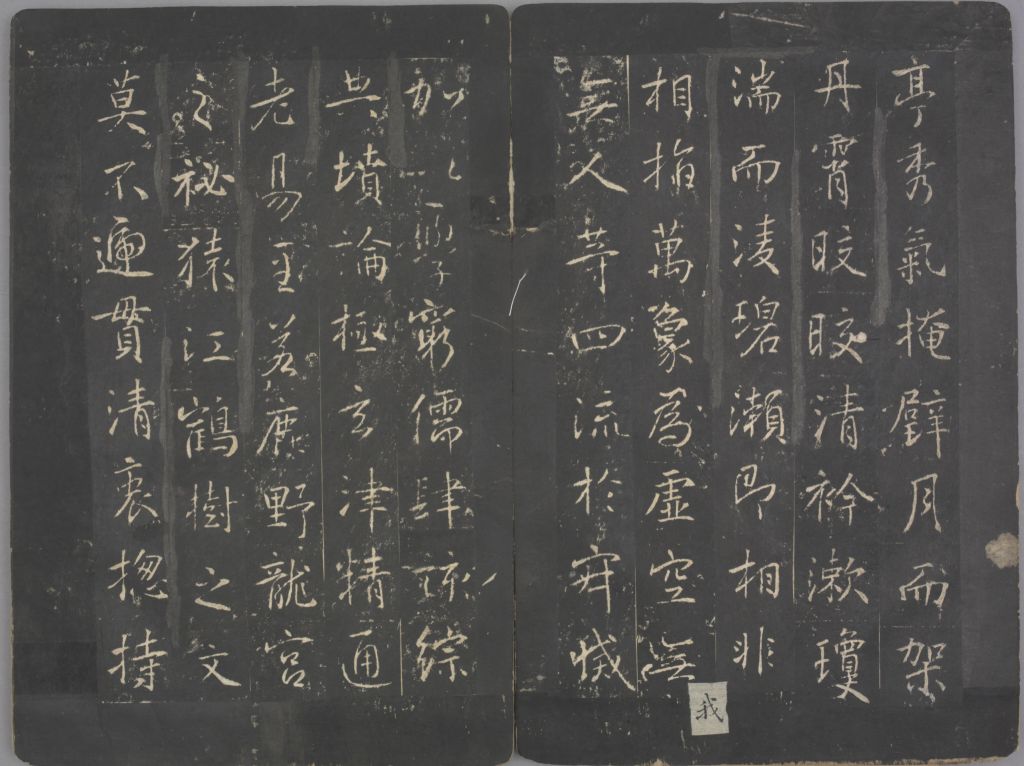 亭秀氣掩璧月而架
丹霄晈晈清衿漱瓊
湍而淩碧瀨即相非
相指萬象為虛空無
我
無人等四流於寂滅
加以學窮儒肆該綜
典墳論極玄津精通
老易至若鹿野龍宮
之祕猿江鶴樹之文
莫不遍貫清衷揔持